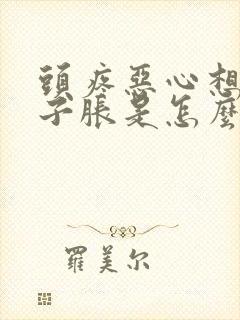 頭疼惡心想
子脹是怎麼
羅美尔